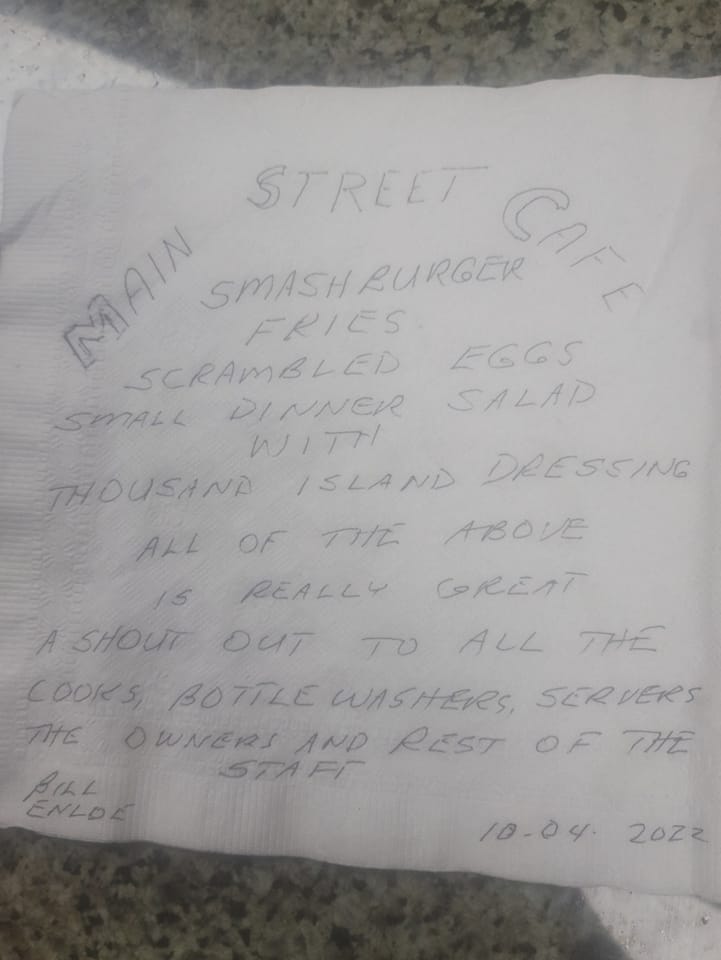 MAIN STREET CAFE
SMASHBURGER
FRIES
SCRAMBLED EGGS
SMALL DINNER SALAD
WITH
THOUSAND ISLAND DRESSING
ALL OF THE ABOVE
IS REALLY GREAT
A SHOUT OUT TO ALL THE
COOKS, BOTTLE WASHERS, SERVERS
THE OWNERS AND REST OF THE
STAFF
BILL
ENLOE
10-04. 2022